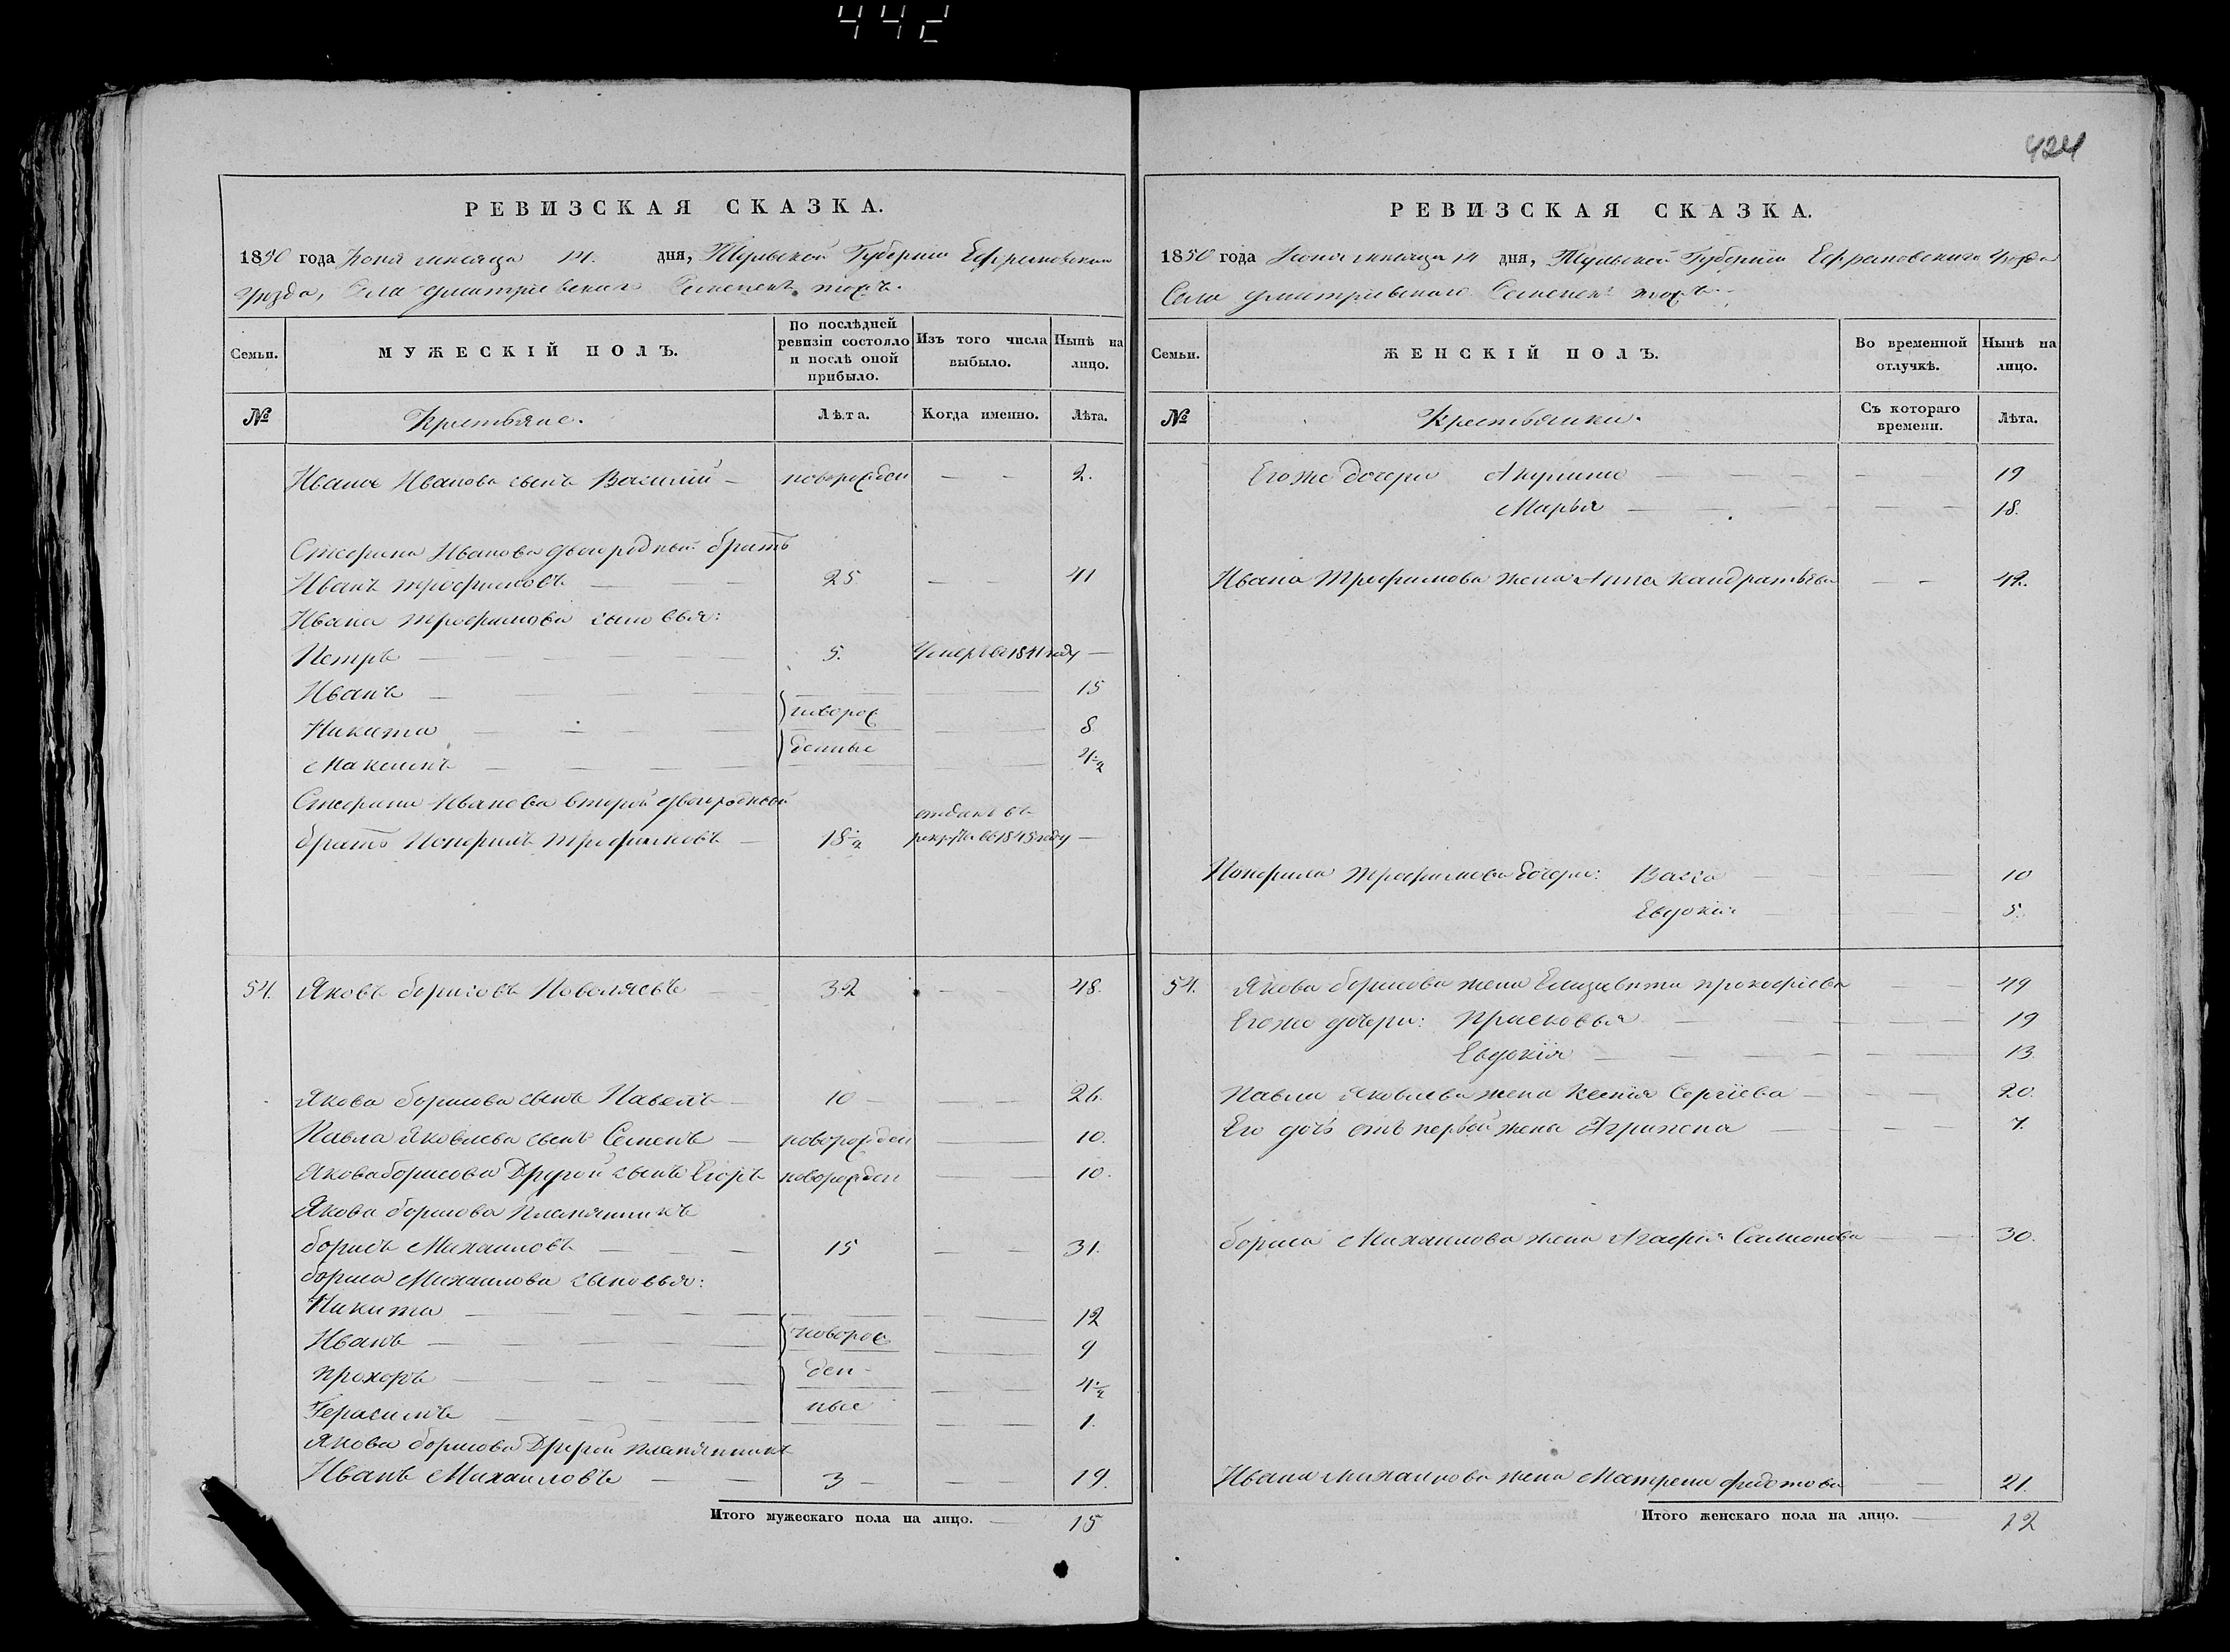 442
424
РЕВИЗСКАЯ СКАЗКА.
1850 года Іюня мѣсяца 14. дня, Тульской Губерніи Ефремовскаго
Уѣзда, Села Дмитріевскаго тожъ.
Семьи.
МУЖЕСКІЙ ПОЛЪ.
По послѣдней ревизіи состояло и послѣ оной прибыло.
Изъ того числа выбыло.
Нынѣ на лицо.
№
Крестьяне.
Лѣта.
Когда именно.
Лѣта.
Ивана Иванова сынъ Василий — новорожден — — 2.
Иванова двоюродный братъ
Иванъ Трофимовъ — — 25. — 41
Ивана Трофимова сыновья:
Петръ — — — 5. Умеръ въ 1841 году —
Иванъ — — — 15
Никита — — — новорож — 8.
Максимъ — — — денные — 4½
Иванова второй двоюродный отданъ въ
братъ Трофимовъ — 18½ рекруты въ 1845 году —
54. Яковъ Борисовъ — 32 — — 48.
Якова Борисова сынъ Павелъ — 10 — — — 26.
Павла Яковлева сынъ Семенъ — новорожден — — 10.
Якова Борисова Другой сынъ Егоръ новорожден — — 10.
Якова Борисова Племянникъ
Борисъ Михаиловъ — — — 15 — — 31.
Бориса Михаилова сыновья:
Никита — — — — 12
Иванъ — — — новорож — 9
Прохоръ — — — ден- — 4½
Герасимъ — — — ные — 1.
Якова Борисова Другой племянникъ
Иванъ Михаиловъ — — 3 — — — 19.
Итого мужескаго пола на лицо. — 15
РЕВИЗСКАЯ СКАЗКА.
1850 года Іюня мѣсяца 14 дня, Тульской Губерніи Ефремовскаго Уѣзда
Села Дмитріевскаго тожъ.
Семьи.
ЖЕНСКІЙ ПОЛЪ.
Во временной отлучкѣ.
Нынѣ на лицо.
№
Крестьянки.
Съ котораго времени.
Лѣта.
Его же дочери Акулина — — — 19
Марья — — — 18.
Ивана Трофимова жена Анна Кандратьева — — 42.
Трофимова дочери: Васса — — 10
Евдокія — — 5.
54. Якова Борисова жена Елизавета Прокофіева — — 49
Его же дочери: Прасковья — — — 19
Евдокія — — — 13.
Павла Яковлева жена Ксенія Сергіева — — — 20.
Его дочь отъ первой жены Агрипена — — — 7.
Бориса Михаилова жена Агафія — — 30.
Ивана Михаилова жена Матрена Федотова — — 21.
Итого женскаго пола на лицо. — 12